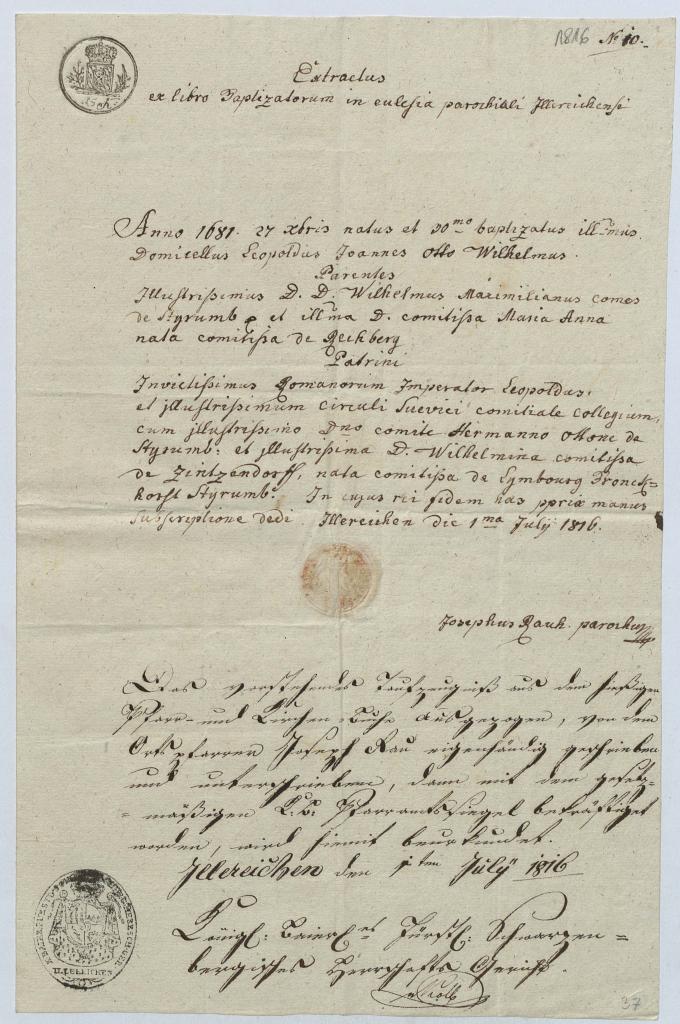 1816 No 10.
Extractus
ex libro Baptizatorum in eclesia parochiali Illereichensi
Anno 1681. 27 xbris natus et 30mo baptizatus illmus
Domicellus Leopoldus Joannes Otto Wilhelmus.
Parentes
Illustrissimus D. D. Wilhelmus Maximilianus comes
de Styrumb et illma D. comitissa Maria Anna
nata comitissa de Rechberg
Patrini
Invictissimus Romanorum Imperator Leopoldus,
et illustrissimum circuli Suevici comitiale collegium,
cum illustrissimo Dno comite Hermanno Ottone de
Styrumb: et illustrissima D. Wilhelmina comitissa
de Zintzendorff, nata comitissa de Lymbourg Bronck=
horst Styrumb. In cujus rei fidem has ppriæ manus
subscriptione dedi. Illereichen die 1ma July 1816.
Josephus Rauh. parochus
Das vorstehendes Taufzeugniß aus dem hiesigen
Pfarr- und Kirchen-Buche ausgezogen, von dem
Orts pfarrer Joseph Rau eigenhändig geschrieben
und unterschrieben, dann mit dem gesetz-
mäßigen K. b. Pfarramtssiegel bekräftiget
worden, wird hiemit beurkundet.
Illereichen den 1ten July 1816
Königl: Baierl es Fürstl: Schwarzen=
bergisches Herrschafts Gericht.
ILLEREICHEN
37